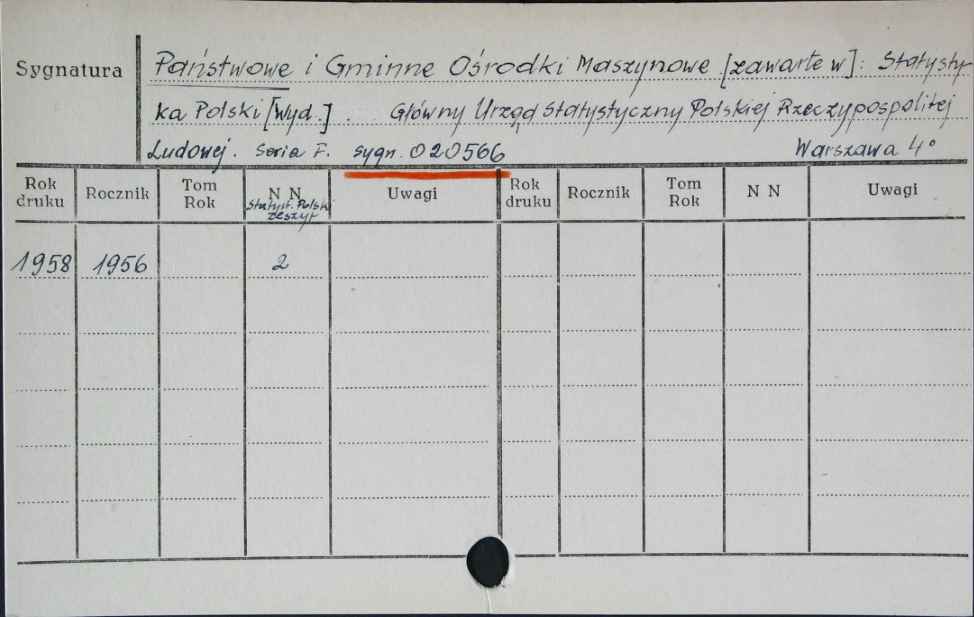 Sygnatura
Państwowe i Gminne Ośrodki Maszynowe [zawarte w]: Statysty-
ka Polski [Wyd.] . Główny Urząd Statystyczny Polskiej Rzeczypospolitej
Ludowej. Seria F. sygn. 020566 Warszawa 4°
Rok druku Rocznik Tom Rok N N Uwagi Rok druku Rocznik Tom Rok N N Uwagi
Statyst. Polski
zeszyt
1958 1956 2